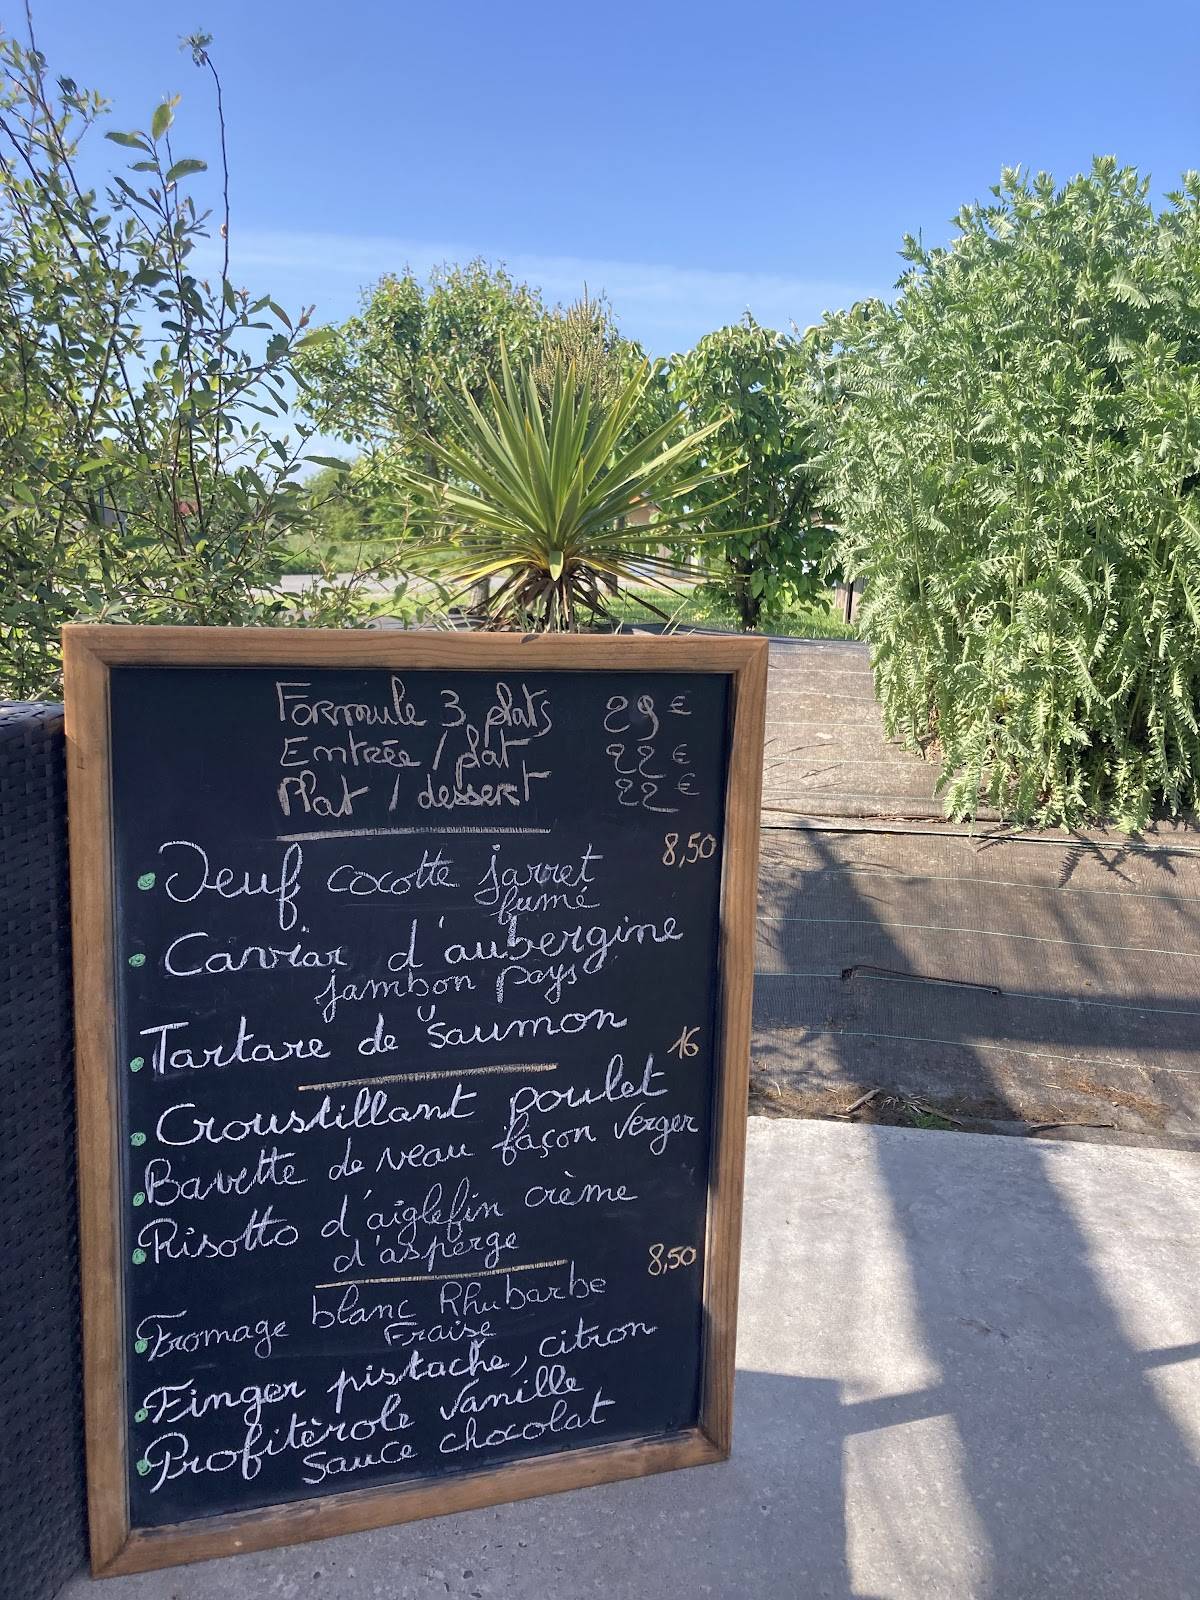 Formule 3 plats 29 €
Entrée / plat 22 €
Plat / dessert 22 €
8,50
Oeuf cocotte jarret
fumé
Caviar d'aubergine
jambon pays
Tartare de saumon
16
Croustillant poulet
Bavette de veau façon verger
Risotto d'aiglefin crème
d'asperge
8,50
Fromage blanc Rhubarbe
Fraise
Finger pistache, citron
Profitèrole vanille
Sauce chocolat